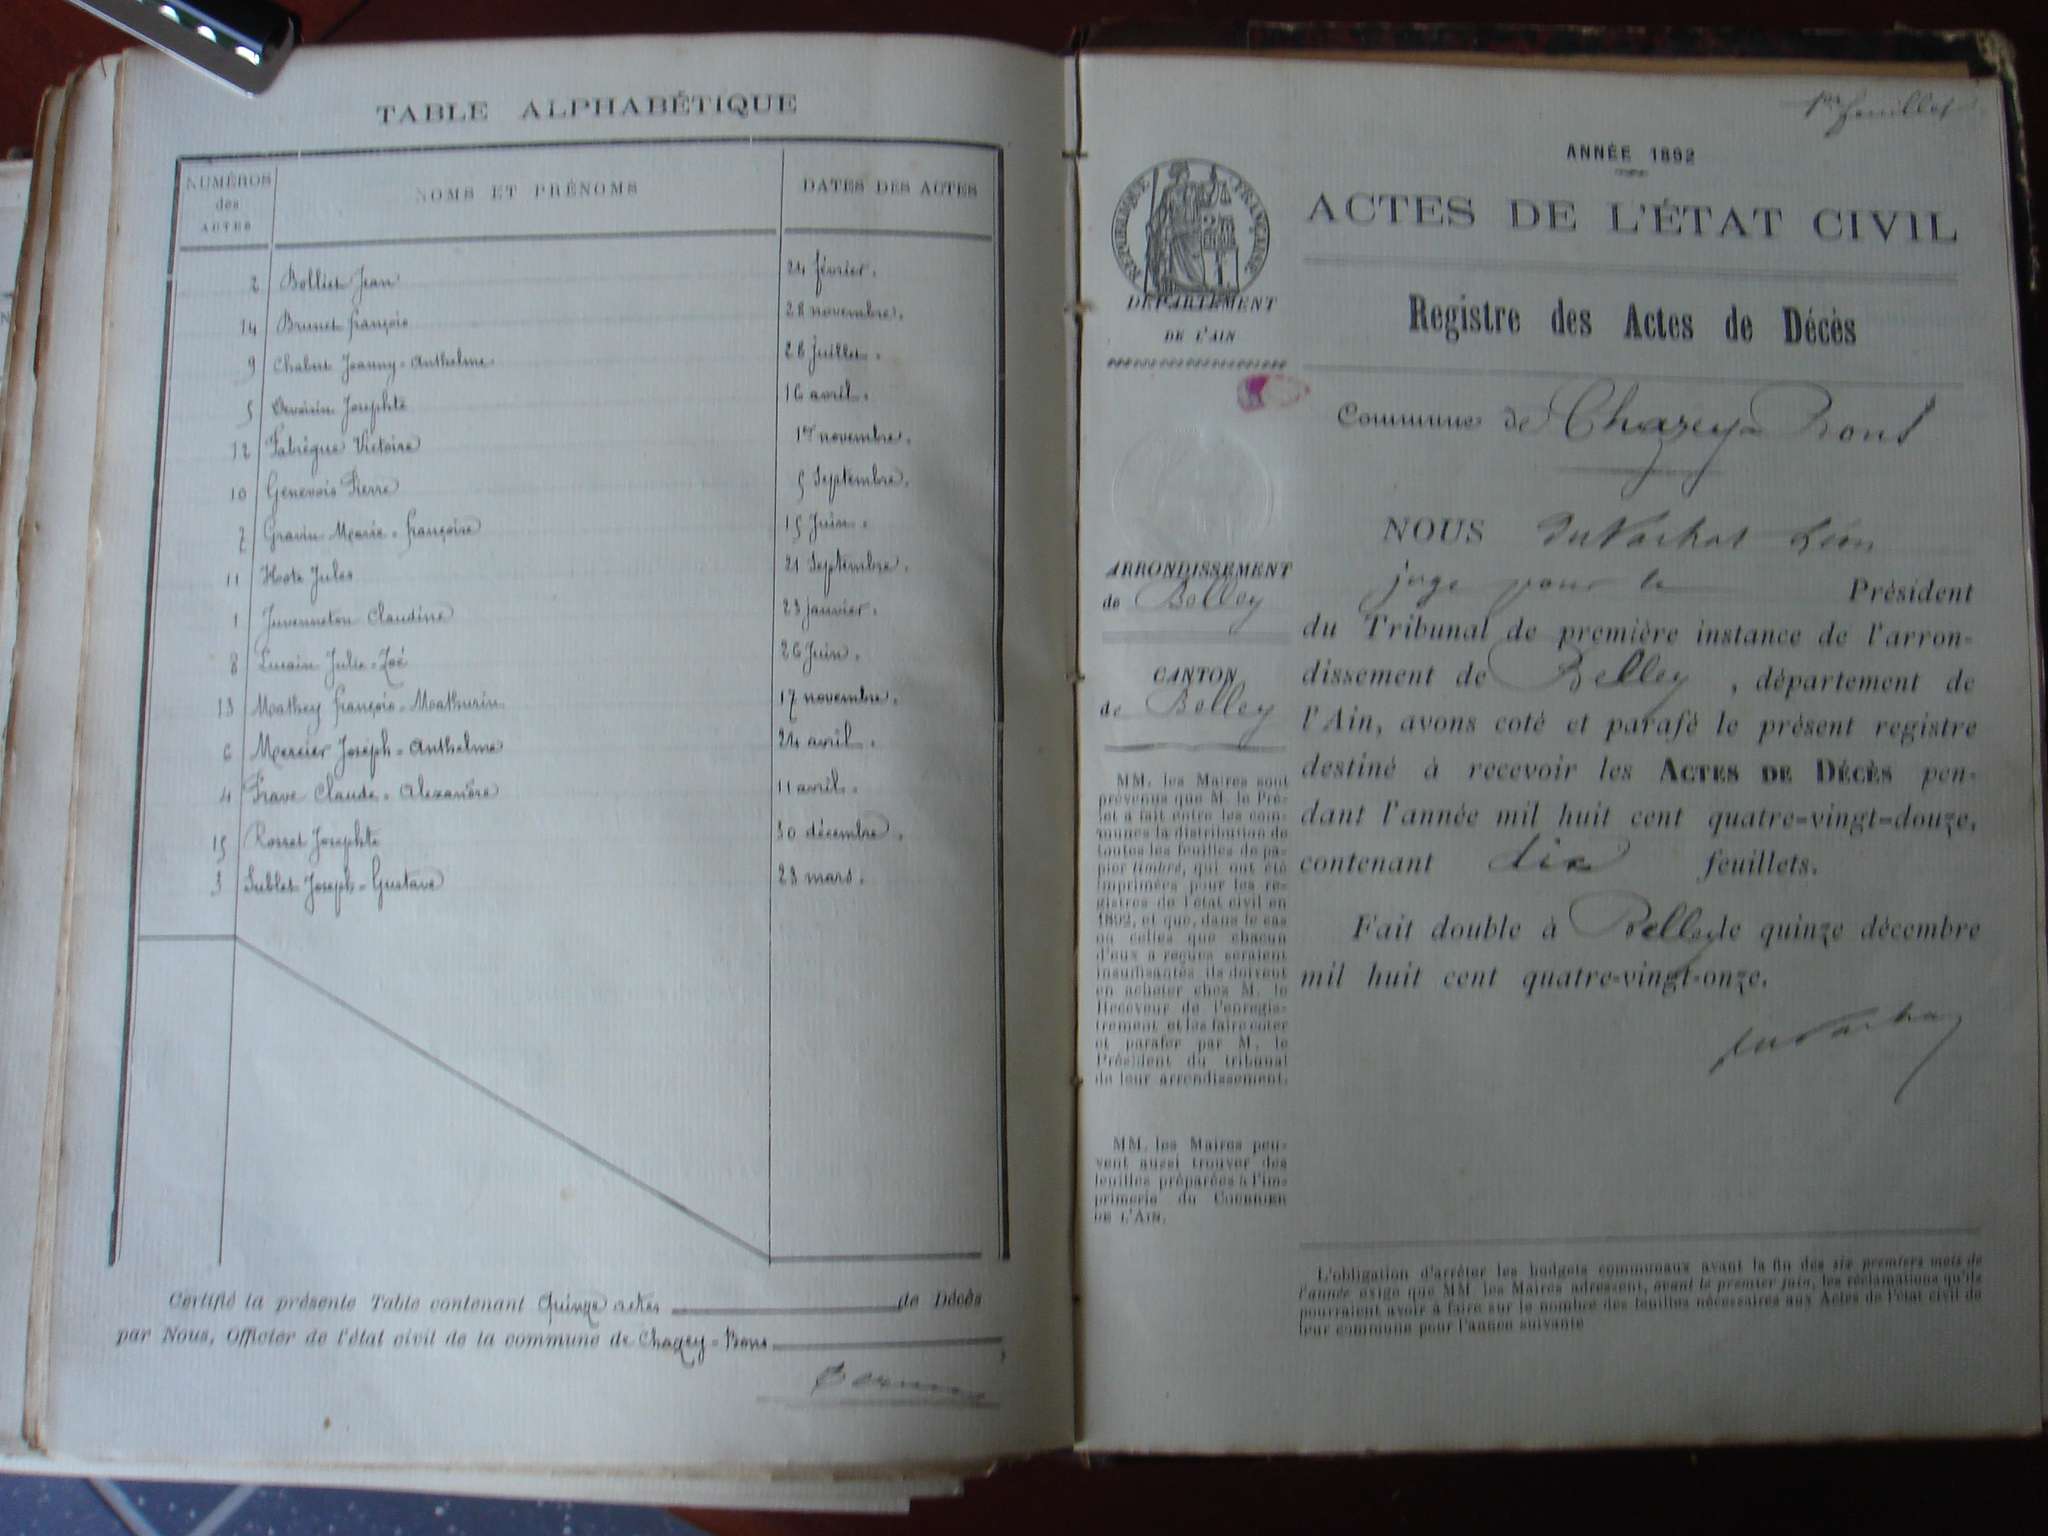 TABLE ALPHABÉTIQUE
NUMÉROS des ACTES
NOMS ET PRÉNOMS
DATES DES ACTES
2 Bolliet Jean 24 février.
14 Brunet françois 28 novembre.
9 Chabert Joanny=Anthelme 28 juillet.
5 Devoisin Josephte 16 avril.
12 Fabrègue Victoire 1er novembre.
10 Genevois Pierre 5 Septembre.
7 Gravin Marie=françoise 15 Juin.
11 Hoste Jules 21 Septembre.
1 Juvenneton Claudine 23 janvier.
8 Julie=Zoé 26 Juin.
13 Mathey françois=Mathurin 17 novembre.
6 Mercier Joseph=Anthelme 24 avril.
4 Claude=Alexandre 11 avril.
15 Rosset Josephte 30 décembre.
3 Sublet Joseph=Gustave 23 mars.
Certifié la présente Table contenant quinze actes de Décès
par Nous, Officier de l'état civil de la commune de Chazey=Bons
1er feuillet
ANNÉE 1892
ACTES DE L'ÉTAT CIVIL
RÉPUBLIQUE FRANÇAISE
DÉPARTEMENT
DE L'AIN
Registre des Actes de Décès
Commune de Chazey=Bons
ARRONDISSEMENT
de Belley
CANTON
de Belley
MM. les Maires sont
prévenus que M. le Pré-
fet a fait entre les com-
munes la distribution de
toutes les feuilles de pa-
pier timbré, qui ont été
imprimées pour les re-
gistres de l'état civil en
1892, et que, dans le cas
où celles que chacun
d'eux a reçues seraient
insuffisantes ils doivent
en acheter chez M. le
Receveur de l'enregis-
trement et les faire coter
et parafer par M. le
Président du tribunal
de leur arrondissement.
MM. les Maires peu-
vent aussi trouver des
feuilles préparées à l'im-
primerie du COURRIER
DE L'AIN.
NOUS Léon
juge pour le Président
du Tribunal de première instance de l'arron-
dissement de Belley, département de
l'Ain, avons coté et parafé le présent registre
destiné à recevoir les ACTES DE DÉCÈS pen-
dant l'année mil huit cent quatre=vingt=douze,
contenant dix feuillets.
Fait double à Belley le quinze décembre
mil huit cent quatre=vingt-onze.
L'obligation d'arrêter les budgets communaux avant la fin des six premiers mois de
l'année exige que MM. les Maires adressent, avant le premier juin, les réclamations qu'ils
pourraient avoir à faire sur le nombre des feuilles nécessaires aux Actes de l'état civil de
leur commune pour l'année suivante